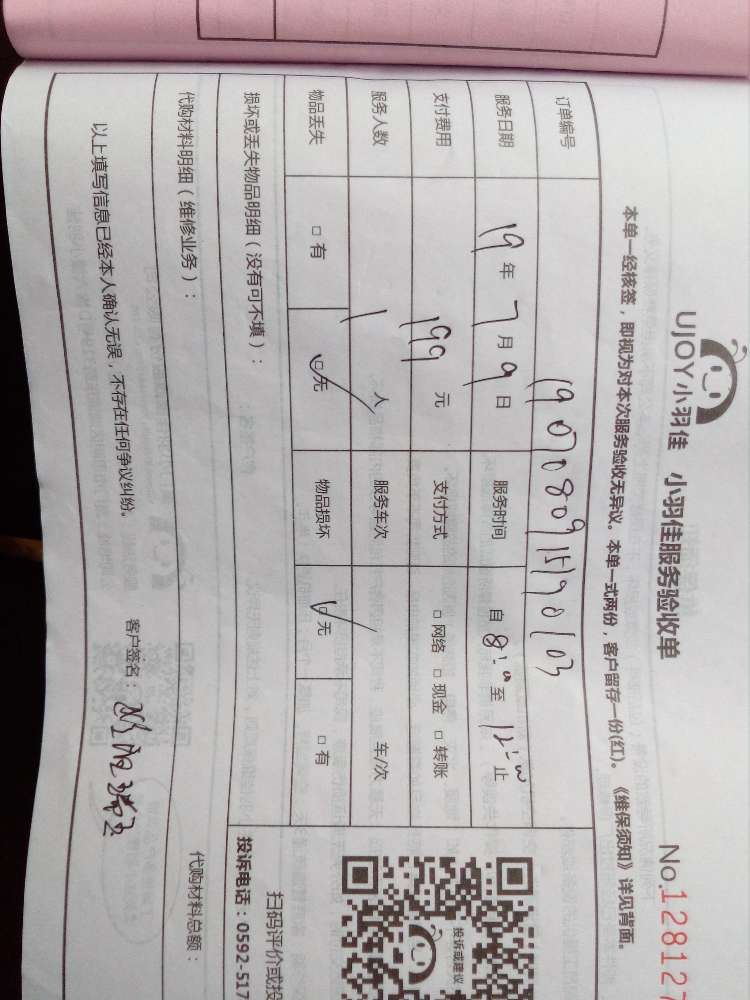 UJOY小羽佳 小羽佳服务验收单 No.128127
本单一经核签，即视为对本次服务验收无异议。本单一式两份，客户留存一份(红)。《维保须知》详见背面。
订单编号 1907080915190103
服务日期 19年7月9日 服务时间 自 至 止
支付费用 199元 支付方式 □网络 □现金 □转账
服务人数 1人 服务车次 车/次
物品丢失 □有 □无 物品损坏 □无 □有
损坏或丢失物品明细（没有可不填）：
代购材料明细（维修业务）： 代购材料总额：
以上填写信息已经本人确认无误，不存在任何争议纠纷。 客户签名：
投诉或建议
扫码评价或投
投诉电话：0592-517